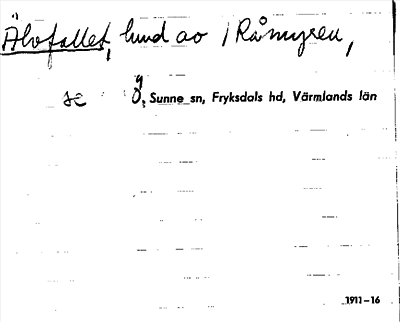 Älvfallet, lund av / Råmyren,
se Ö. Sunne sn, Fryksdals hd, Värmlands län
1911–16